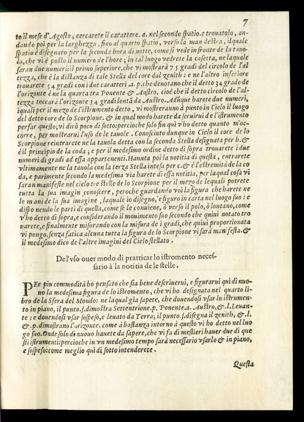 7
to il mese d'Agosto, cercarete il carattere. a. nel secondo spatio, e trouatolo, an-
dando poi per la larghezza, fino al quarto spatio, verso la man destra, il quale
spatio è disegnato per la seconda hora di notte, come si vede in fronte de la tauo-
la, che vi è posto il numero de l'hore; in tal luogo vedrete la casetta, ne la quale
saran due numeri il primo superiore, che vi mostrarà 75 gradi del circolo de l'al
tezza, che è la distanza di tale Stella del cor dal zenith: e ne l'altro inferiore
trouarete 54 gradi con i dui caratteri .a.p. che denotano che il detto circolo de l'al
l'orizonte è ne la quarta tra Ponente & Austro, cioè che il detto circolo de l'al-
tezza toccarà l'orizonte 54 gradi lontà da .Austro. Adunque harete due numeri,
iquali per il mezo de l'istrumento detto, vi mostraranno il punto in Cielo il luogo
del detto core de lo Scorpione. & in qual modo harete da seruirui de l'istrumento
per far questo, vi dirò poco di sotto perche solo fin quì v'ho detto quanto m'oc-
corre, per mostrarui l'uso de le tauole. Conosciuto dunque in Cielo il core de lo
Scorpione reintrarete ne la tauola detta con la seconda Stella designata per b, & è
il principio de la coda; e per il medesimo ordine detto di sopra trouarete i due
numeri di gradi ad essa appartenenti. Hauuta poi la notitia di questa, entrarete
vltimamente ne la tauola con la terza Stella intesa per c. & è l'estremità de la co
da, e parimente secondo la medesima via harete di essa notitia, per laqual cosa vi
saran manifeste nel cielo tre stelle de lo Scorpione per il mezo de lequali potrete
tutta la sua imagin conoscere, perche guardando voi la figura che harete ne
le mani de la sua imagine, laquale io disegno, e figuro in carta nel luogo suo: e
dispo nendo le parti di quella, come se le conuiene, ò verso il polo, ò lontano, come
v'ho detto di sopra, e considerando il mouimento suo secondo che quiui notato tro
uarete, e finalmente misurando con la misura de i gradi, che quiui proportionata
vi pongo, senza fatica alcuna tutta la figura de lo Scorpione vi sarà manifesta. &
il medesimo dico de l'altre imagini del Cielo stellato.
De l'vso ouer modo di praticar lo istromento neces-
sario à la notitia de le stelle.
PEr piu commodità ho pensato che sia bene descriuerui, e figurarui quì di nuo-
uo la medesima figura de lo istromento, che vi ho designata nel quarto li-
bro de la Sfera del Mondo: ne laqual già sapete, che douendosi vsar lo istrumen-
to in piano, il punto .f. dimostra Settentrione. p. Ponente. a. Austro, & .l. Leuan-
te: e douendosi vsar sospeso, e leuato da Terra; il punto .f. disegna il zenith, & .l.
& .p. dimostrano l'orizonte. come à bastanza intorno à questo vi ho detto nel luo
go suo. Onde solo di nuouo hauete da sapere, che vi fa di mestieri hauer due di que
sti istrumenti: percioche in vn medesimo tempo sarà necessario vsarlo & in piano,
e sospeso come meglio quì di sotto intenderete.
Questa